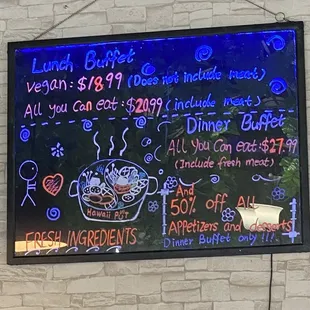 Lunch Buffet
Vegan: $18.99 (Does not include meat)
All You Can eat: $20.99 (include meat)
Dinner Buffet
All You Can Eat: $27.99
(Include fresh meat)
And
50% off All
Appetizers and desserts
Dinner Buffet only !!!
Hawaii Pot
FRESH INGREDIENTS